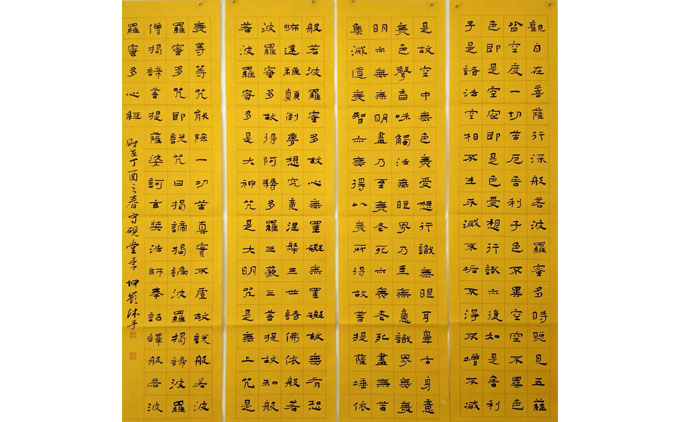 觀自在菩薩行深般若波羅蜜多時照見五蘊
皆空度一切苦厄舍利子色不異空空不異色
色即是空空即是色受想行識亦復如是舍利
子是諸法空相不生不滅不垢不淨不增不減
是故空中無色無受想行識無眼耳鼻舌身意
無色聲香味觸法無眼界乃至無意識界無無
明亦無無明盡乃至無老死亦無老死盡無苦
集滅道無智亦無得以無所得故菩提薩埵依
般若波羅蜜多故心無罣礙無罣礙故無有恐
怖遠離顛倒夢想究竟涅槃三世諸佛依般若
波羅蜜多故得阿耨多羅三藐三菩提故知般
若波羅蜜多是大神咒是大明咒是無上咒是
無等等咒能除一切苦真實不虛故說般若波
羅蜜多咒即說咒曰揭諦揭諦波羅揭諦波羅
僧揭諦菩提薩婆訶玄奘法師奉詔譯般若波
羅蜜多心經 時在丁酉之春守硯堂李坤沐手